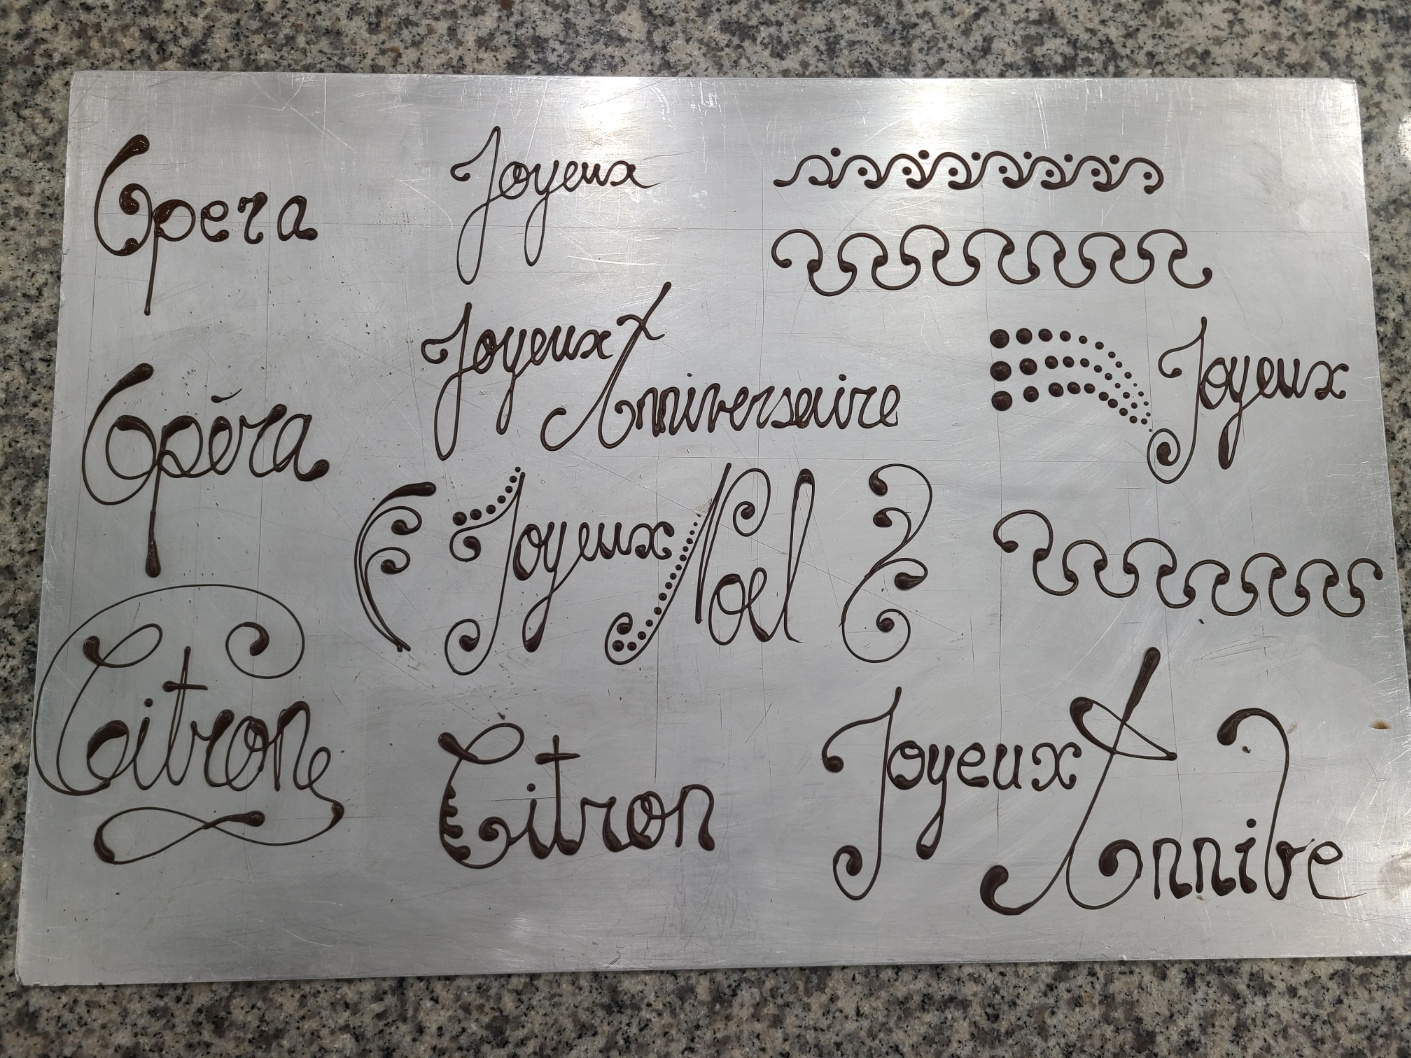 Opera
Joyeux
Joyeux
Anniversaire
Joyeux
Opéra
Joyeux Noel
Citron
Citron
Joyeux
Annive